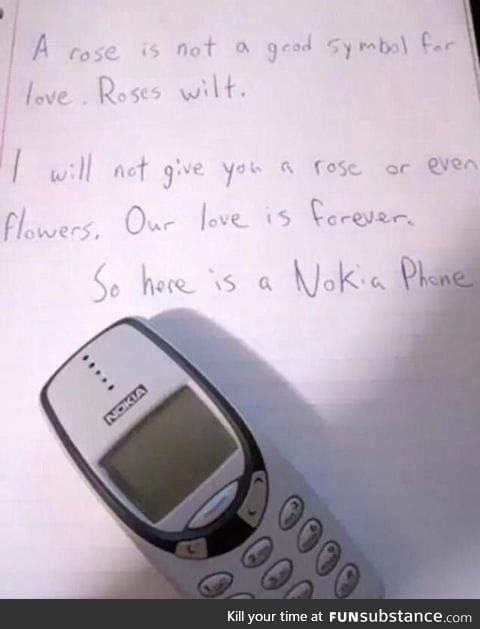 A rose is not a good symbol for
love. Roses wilt.
I will not give you a rose or even
flowers. Our love is forever.
So here is a Nokia Phone
NOKIA
Kill your time at FUNsubstance.com